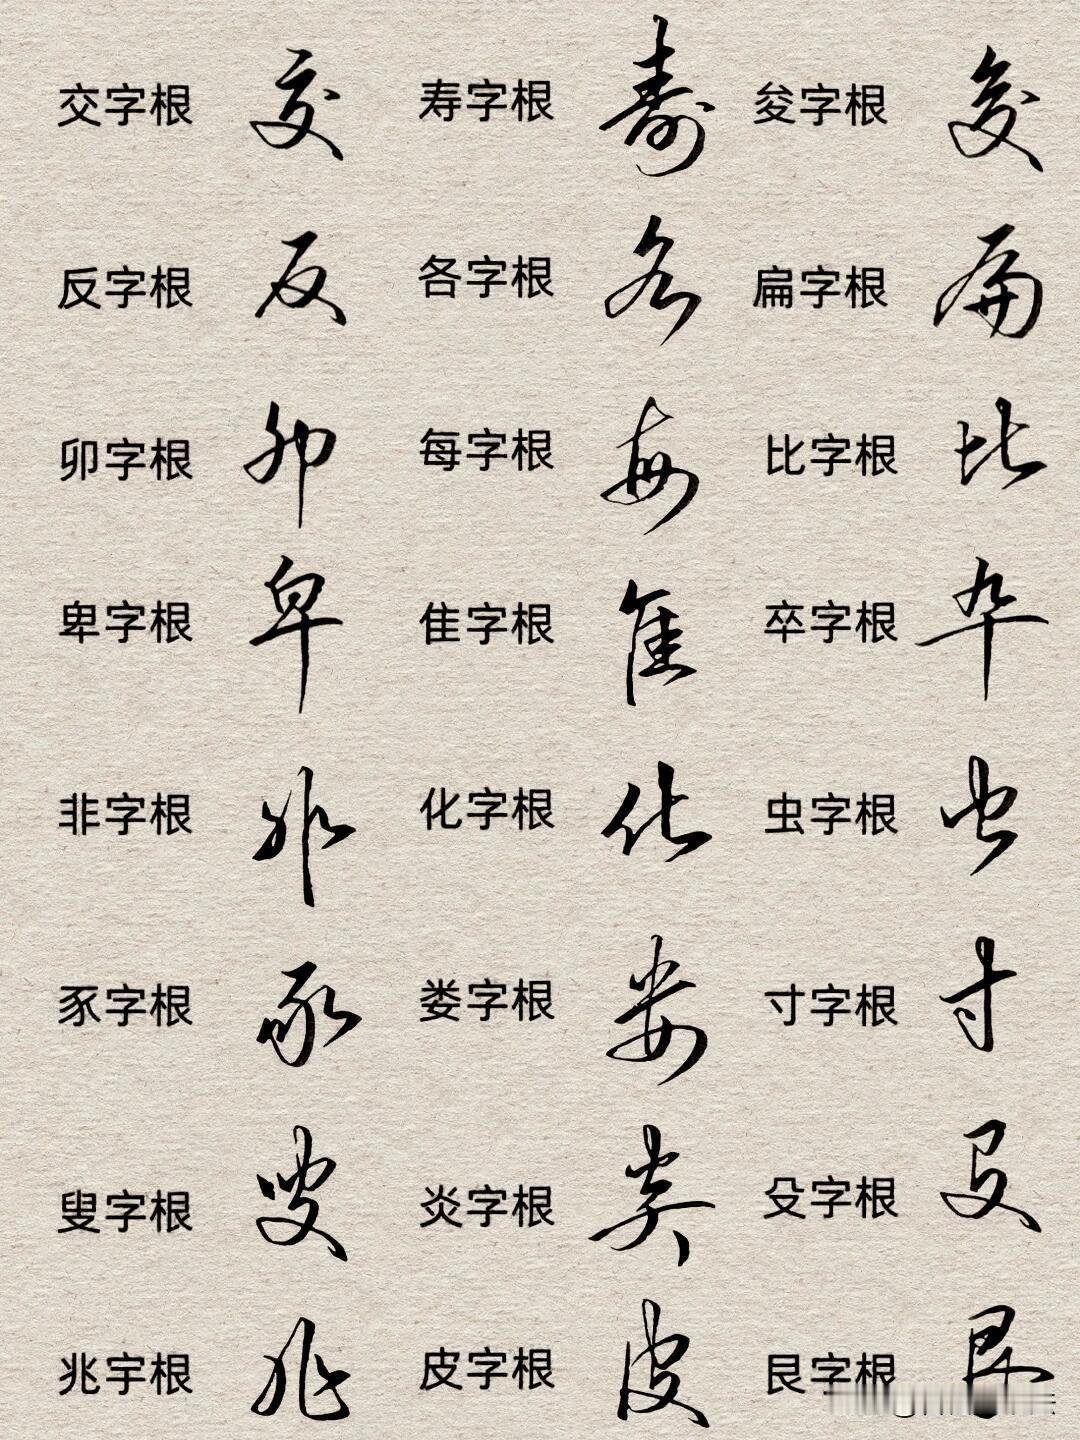 交字根 交 寿字根 寿 夋字根 夋
反字根 反 各字根 各 扁字根 扁
卯字根 卯 每字根 每 比字根 比
卑字根 卑 隹字根 隹 卒字根 卆
非字根 非 化字根 化 虫字根 虫
豕字根 豕 娄字根 娄 寸字根 寸
叟字根 叟 炎字根 炎 殳字根 殳
兆字根 兆 皮字根 皮 艮字根 艮